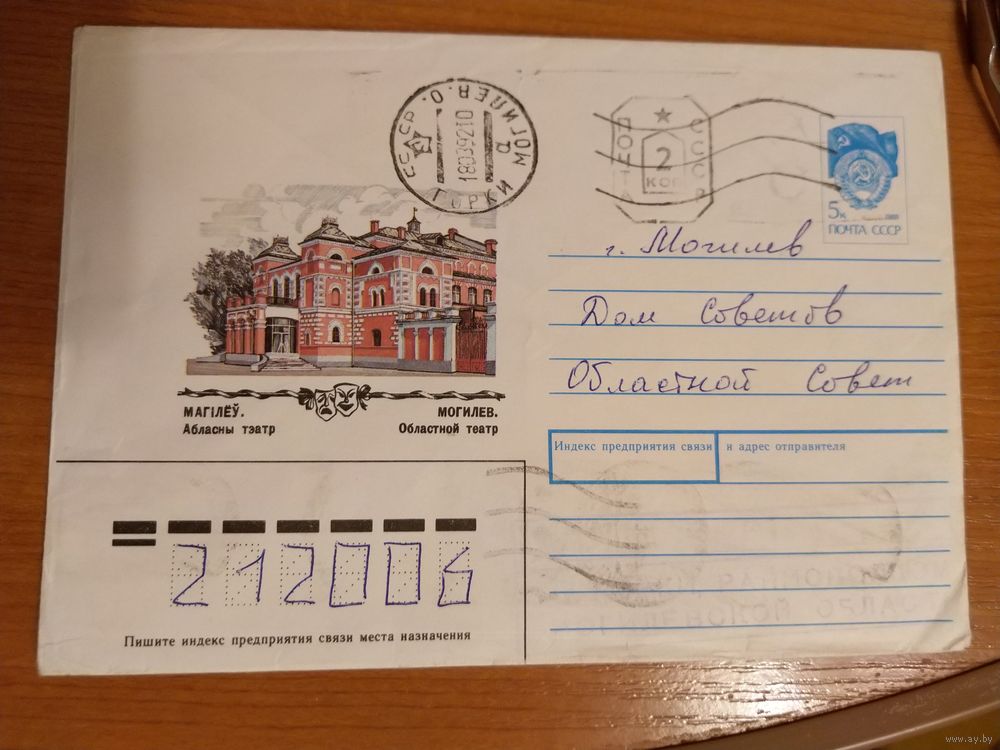 БССР
МОГИЛЕВ. О.
18039210
а
ГОРКИ
ПОЧТА
СССР
2
КОП
5к
ПОЧТА СССР
г. Могилев
Дом Советов
Областной Совет
МАГІЛЁЎ.
Абласны тэатр
МОГИЛЕВ.
Областной театр
Индекс предприятия связи и адрес отправителя
212006
Пишите индекс предприятия связи места назначения
www.ay.by